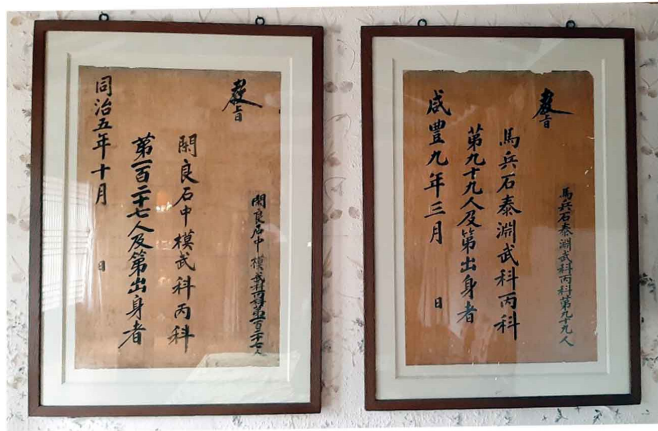 馬兵石泰淵武科丙科第九十九人
敎旨
馬兵石泰淵武科丙科
第九十九人及第出身者
咸豐九年三月 日
閑良石中模武科丙科第一百二十七人
敎旨
閑良石中模武科丙科
第一百二十七人及第出身者
同治五年十月 日